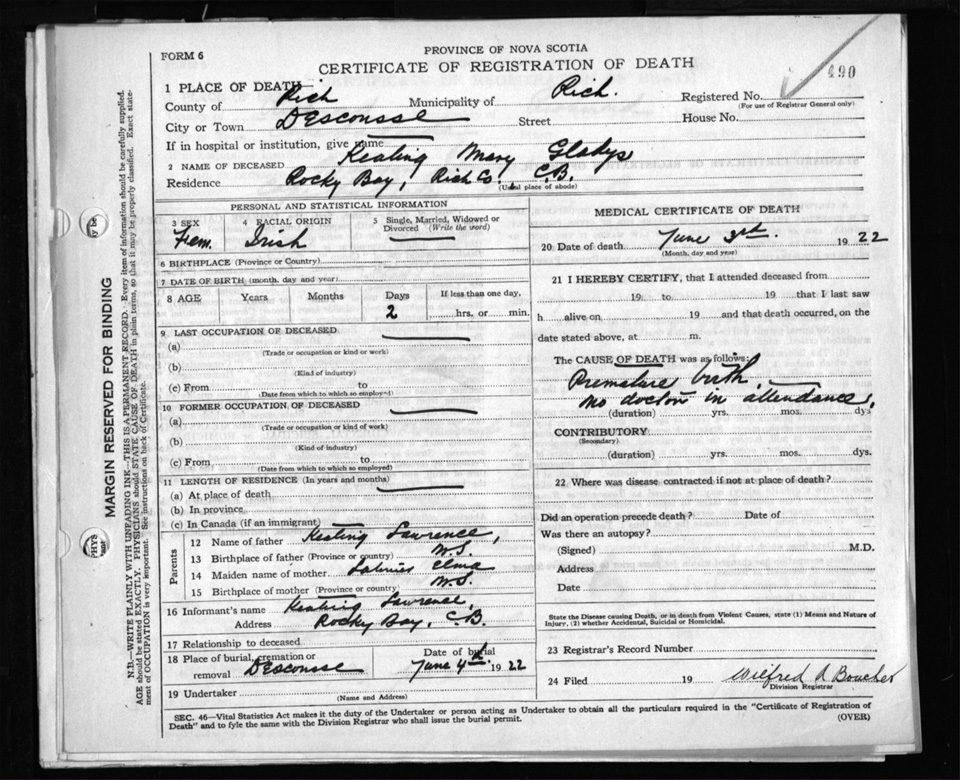 FORM 6
PROVINCE OF NOVA SCOTIA
CERTIFICATE OF REGISTRATION OF DEATH
490
1 PLACE OF DEATH
County of Rich Municipality of Rich. Registered No.
(For use of Registrar General only)
City or Town DEscousse Street House No.
If in hospital or institution, give name
2 NAME OF DECEASED Keating Mary Gladys
Residence Rocky Bay, Rich Co., C.B.
(Usual place of abode)
PERSONAL AND STATISTICAL INFORMATION
3 SEX 4 RACIAL ORIGIN 5 Single, Married, Widowed or Divorced (Write the word)
Fem. Irish
6 BIRTHPLACE (Province or Country)
7 DATE OF BIRTH (month, day and year)
8 AGE Years Months Days If less than one day,
2 hrs. or min.
9 LAST OCCUPATION OF DECEASED
(a)
(Trade or occupation or kind or work)
(b)
(Kind of industry)
(c) From to
(Date from which to which so employed)
10 FORMER OCCUPATION OF DECEASED
(a)
(Trade or occupation or kind of work)
(b)
(Kind of industry)
(c) From to
(Date from which to which so employed)
11 LENGTH OF RESIDENCE (In years and months)
(a) At place of death
(b) In province
(c) In Canada (if an immigrant)
Parents
12 Name of father Keating Lawrence,
13 Birthplace of father (Province or country) N.S.
14 Maiden name of mother Elma
15 Birthplace of mother (Province or country) N.S.
16 Informant's name Keating Lawrence,
Address Rocky Bay, C.B.
17 Relationship to deceased
18 Place of burial, cremation or removal DEscousse Date of burial June 4th. 1922
19 Undertaker
(Name and Address)
MEDICAL CERTIFICATE OF DEATH
20 Date of death June 3rd. 1922
(Month, day and year)
21 I HEREBY CERTIFY, that I attended deceased from
19 to 19 that I last saw
h alive on 19 and that death occurred, on the
date stated above, at m.
The CAUSE OF DEATH was as follows:
Premature birth.
no doctor in attendance,
(duration) yrs. mos. dys
CONTRIBUTORY
(Secondary)
(duration) yrs. mos. dys.
22 Where was disease contracted if not at place of death?
Did an operation precede death? Date of
Was there an autopsy?
(Signed) M.D.
Address
Date
State the Disease causing Death, or in death from Violent Causes, state (1) Means and Nature of
Injury, (2) whether Accidental, Suicidal or Homicidal.
23 Registrar's Record Number
24 Filed 19 Wilfred A Boucher
Division Registrar
SEC. 46—Vital Statistics Act makes it the duty of the Undertaker or person acting as Undertaker to obtain all the particulars required in the "Certificate of Registration of
Death" and to fyle the same with the Division Registrar who shall issue the burial permit.
(OVER)
MARGIN RESERVED FOR BINDING
N.B.—WRITE PLAINLY WITH UNFADING INK—THIS IS A PERMANENT RECORD. Every item of information should be carefully supplied.
AGE should be stated EXACTLY. PHYSICIANS should STATE CAUSE OF DEATH in plain terms, so that it may be properly classified. Exact state-
ment of OCCUPATION is very important. See instructions on back of Certificate.